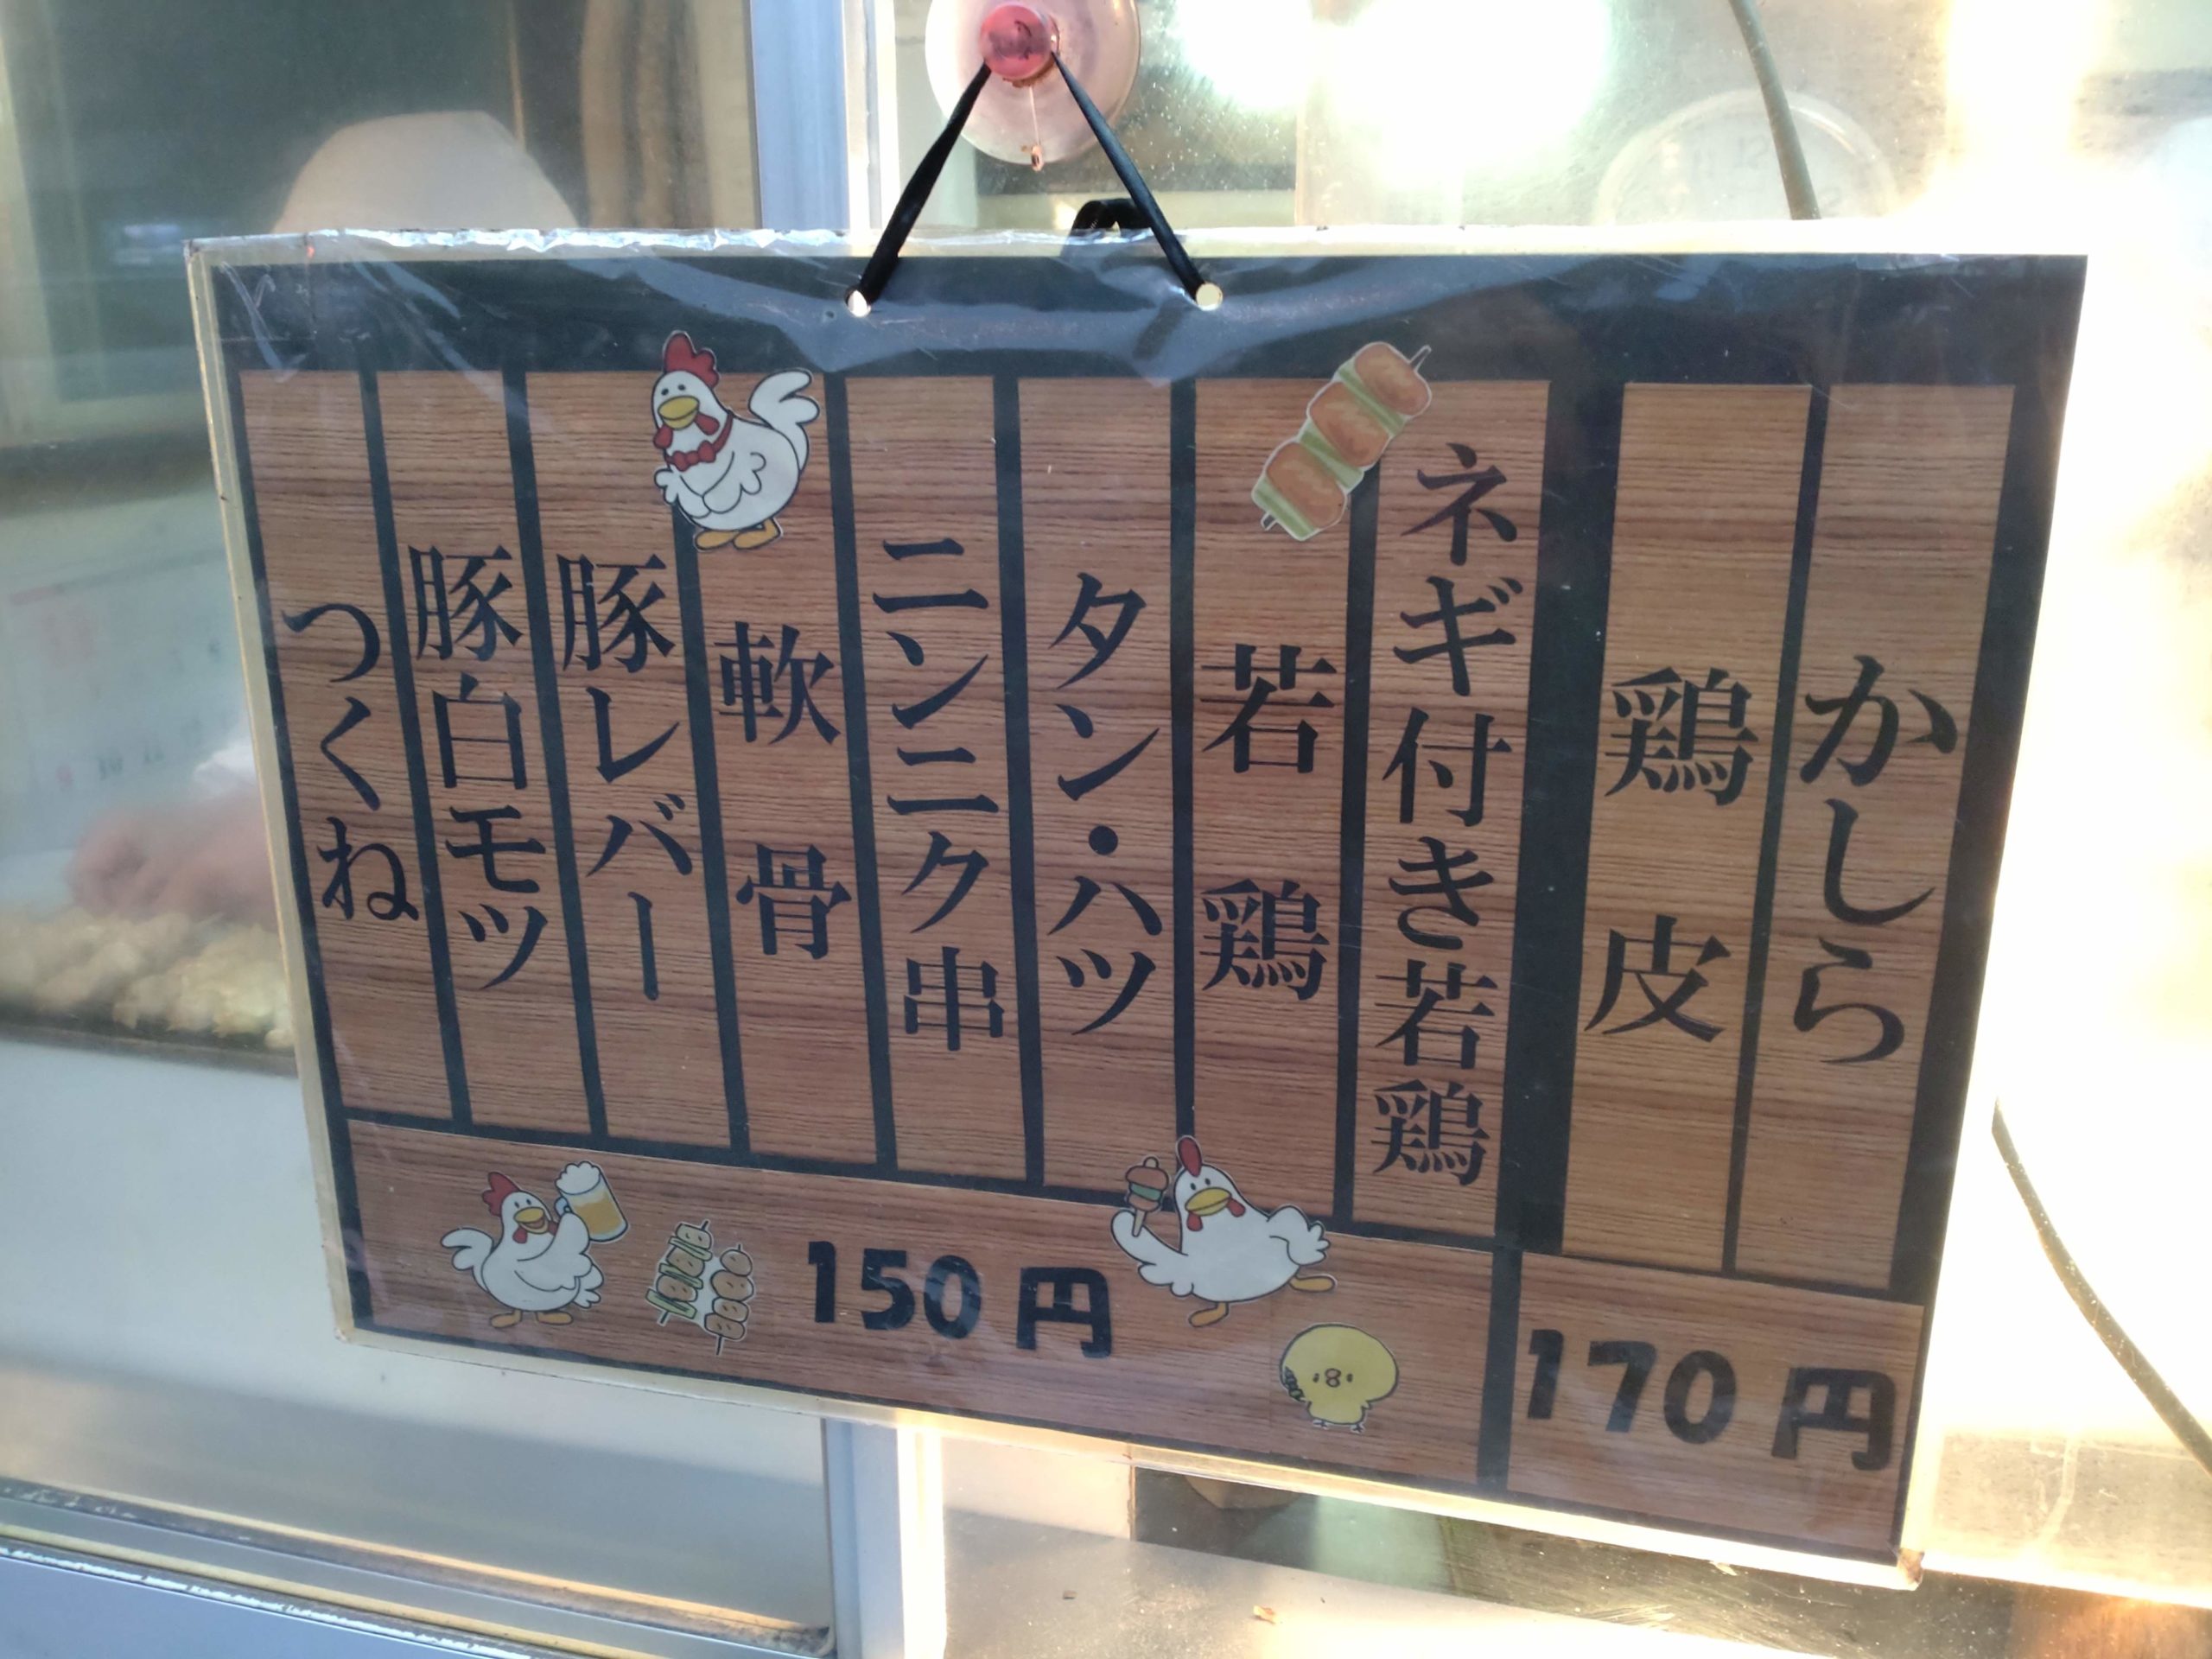 かしら
鶏皮
ネギ付き若鶏
若鶏
タン・ハツ
ニンニク串
軟骨
豚レバー
豚白モツ
つくね
170円
150円